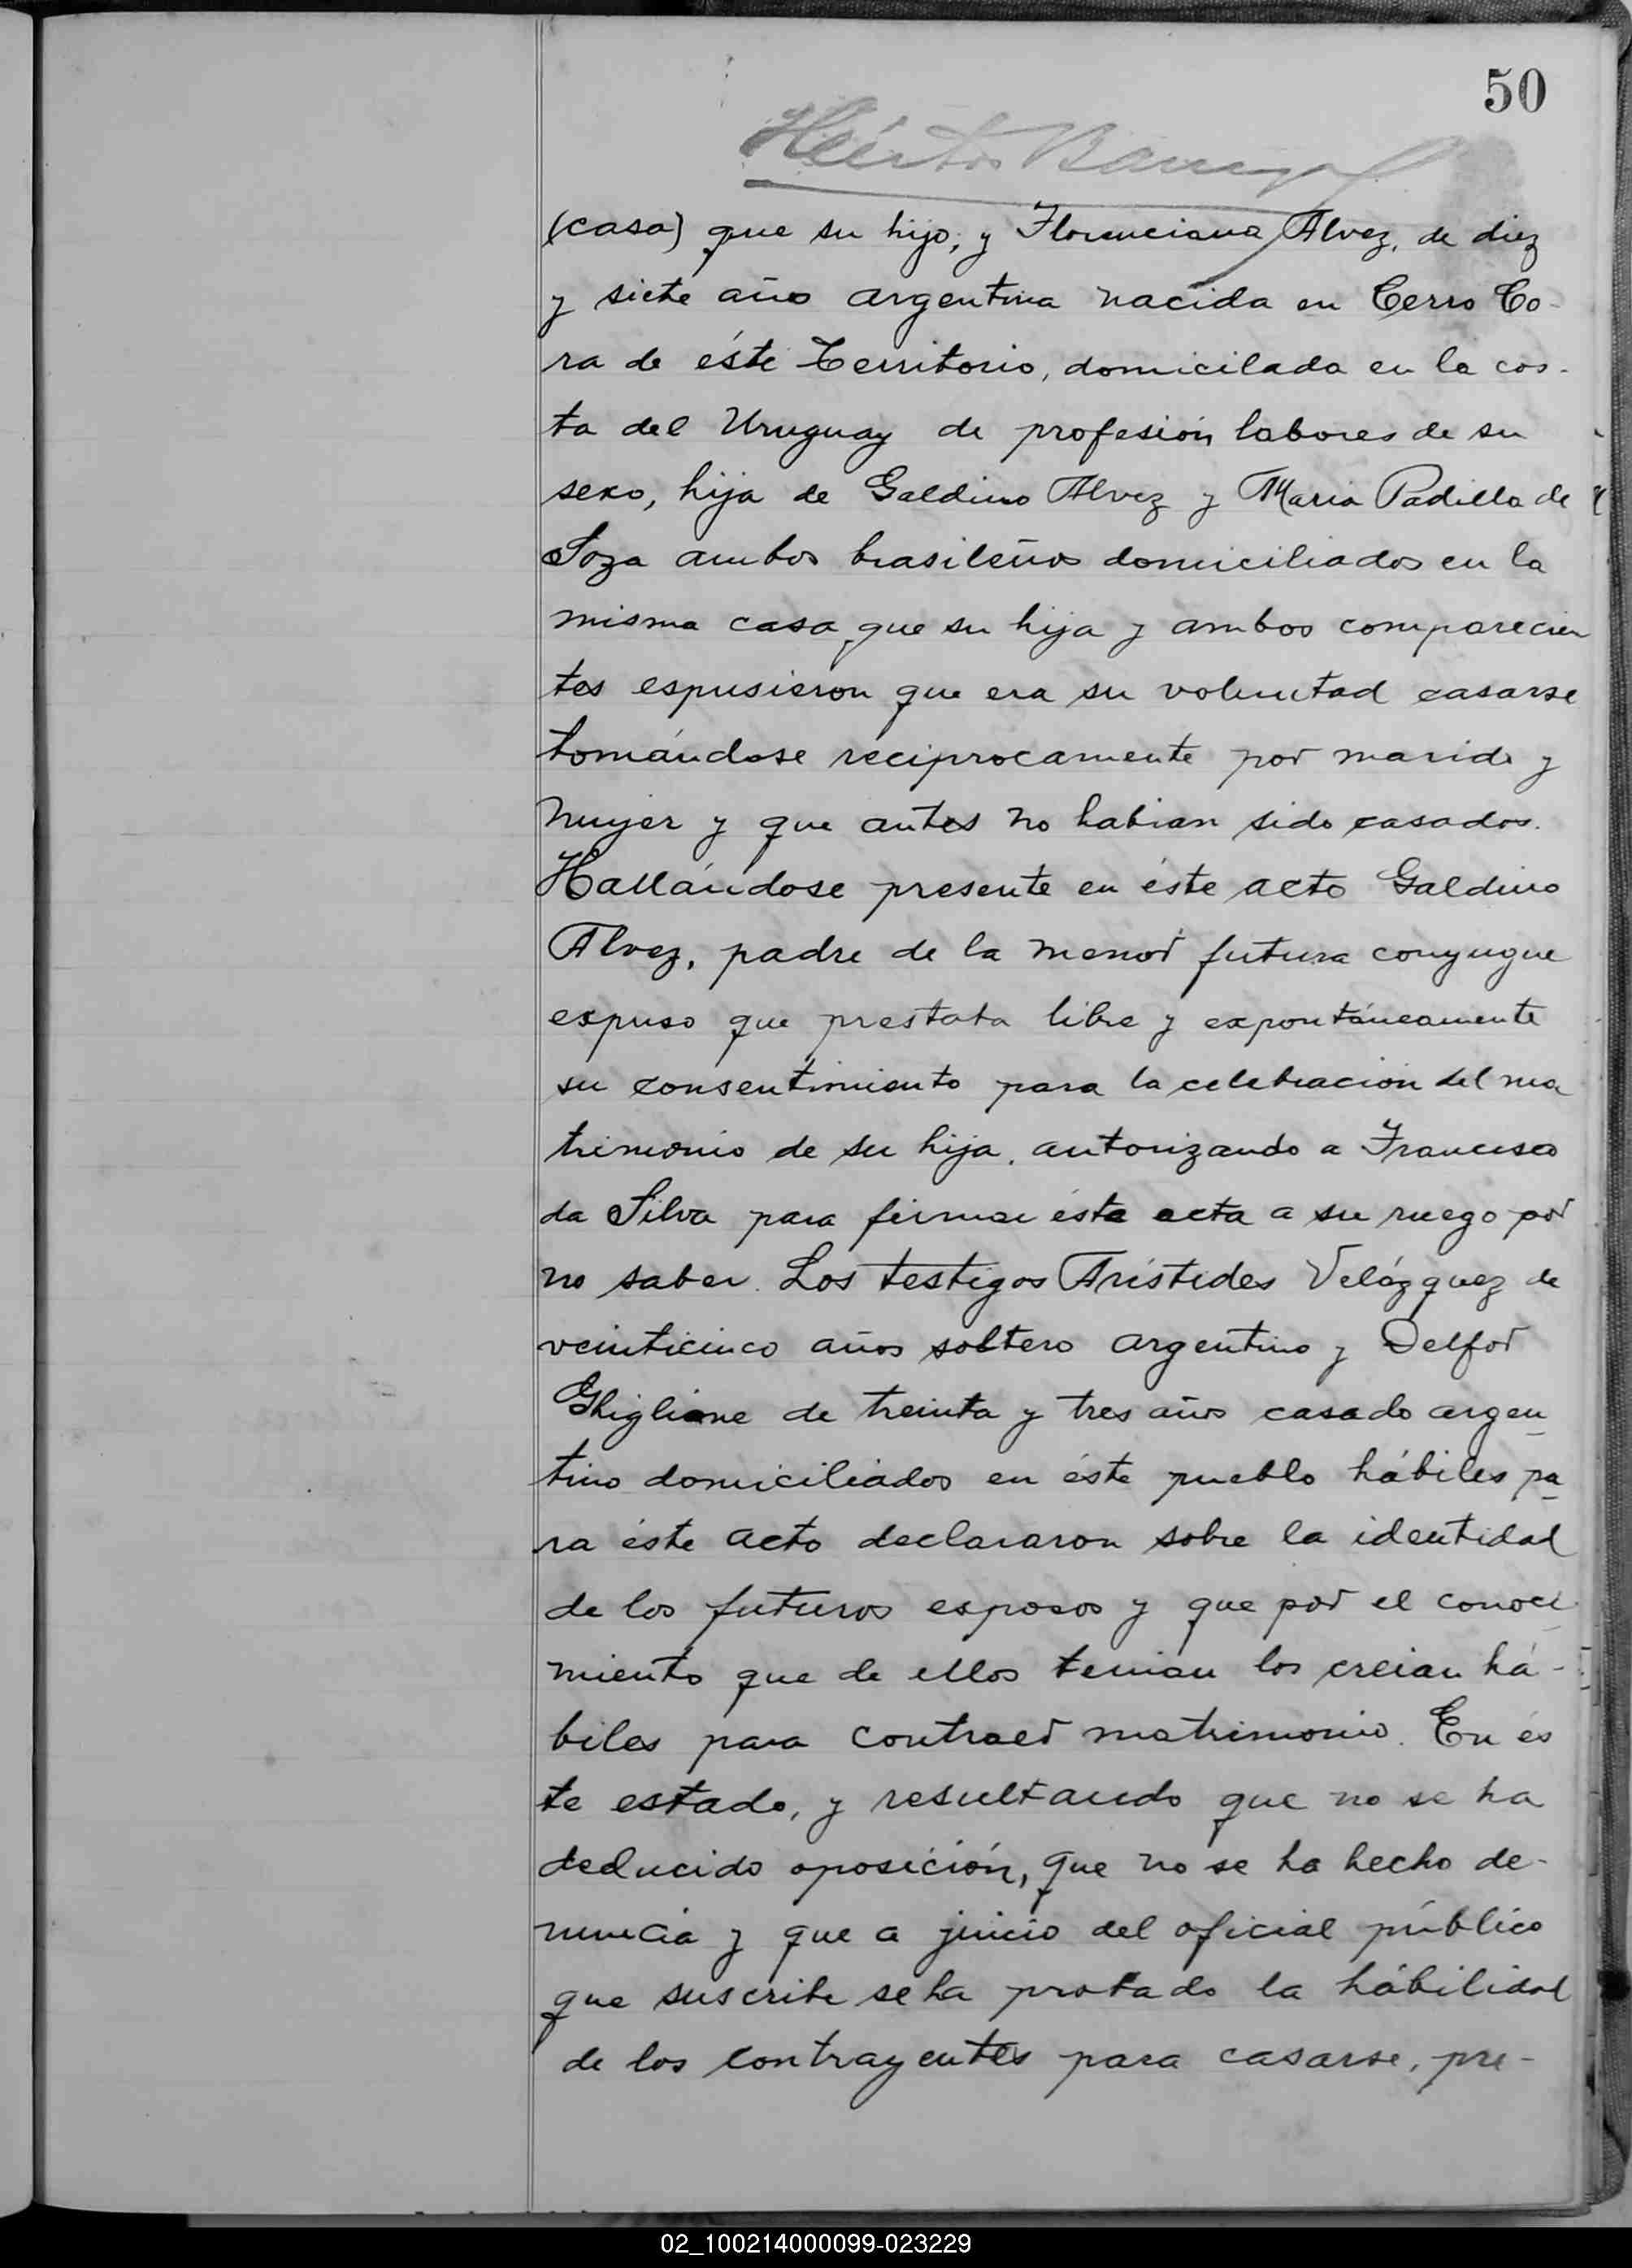 50
Héctor Barreyro
(casa) que su hijo; y Florenciana Alvez, de diez
y siete años argentina nacida en Cerro Co-
ra de éste Territorio, domicilada en la cos-
ta del Uruguay de profesión labores de su
sexo, hija de Galdino Alvez y Maria Padilla de
Soza ambos brasileños domiciliados en la
misma casa que su hija y ambos comparecien
tes espusieron que era su voluntad casarse
tomándose reciprocamente por marido y
mujer y que antes no habian sido casados.
Hallándose presente en éste acto Galdino
Alvez, padre de la menor futura conyugue
expuso que prestaba libre y expontáneamente
su consentimiento para la celebración del ma
trimonio de su hija, autorizando a Francisco
da Silva para firmar ésta acta a su ruego por
no saber. Los testigos Arístides Velázquez de
veinticinco años soltero argentino y Delfor
Ghiglione de treinta y tres años casado argen
tino domiciliados en éste pueblo hábiles pa
ra éste acto declararon sobre la identidad
de los futuros esposos y que por el conoci
miento que de ellos tenian los creian há-
biles para contraer matrimonio. En és
te estado, y resultando que no se ha
deducido oposición, que no se ha hecho de-
nuncia y que a juicio del oficial público
que suscribe se ha probado la hábilidad
de los contrayentes para casarse, pre-
02_100214000099-023229